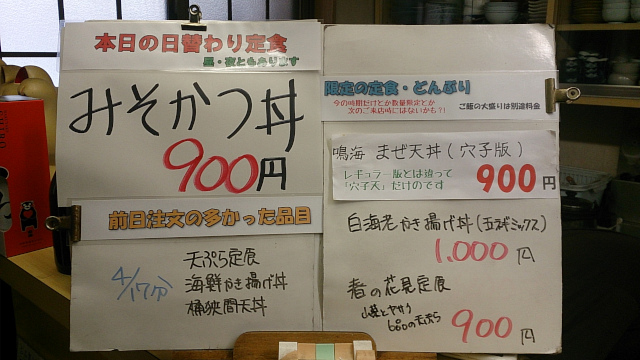 本日の日替わり定食
昼・夜ともあります
みそかつ丼
900円
前日注文の多かった品目
4/17分
天ぷら定食
海鮮かき揚げ丼
桶狭間天丼
限定の定食・どんぶり
今の時期だけとか数量限定とか
次のご来店時にはないかも?!
ご飯の大盛りは別途料金
鳴海 まぜ天丼(穴子版)
レギュラー版とは違って
「穴子天」だけのです
900円
白海老かき揚げ丼(玉ネギミックス)
1.000円
春の花見定食
山菜とヤサイ
の天ぷら
900円